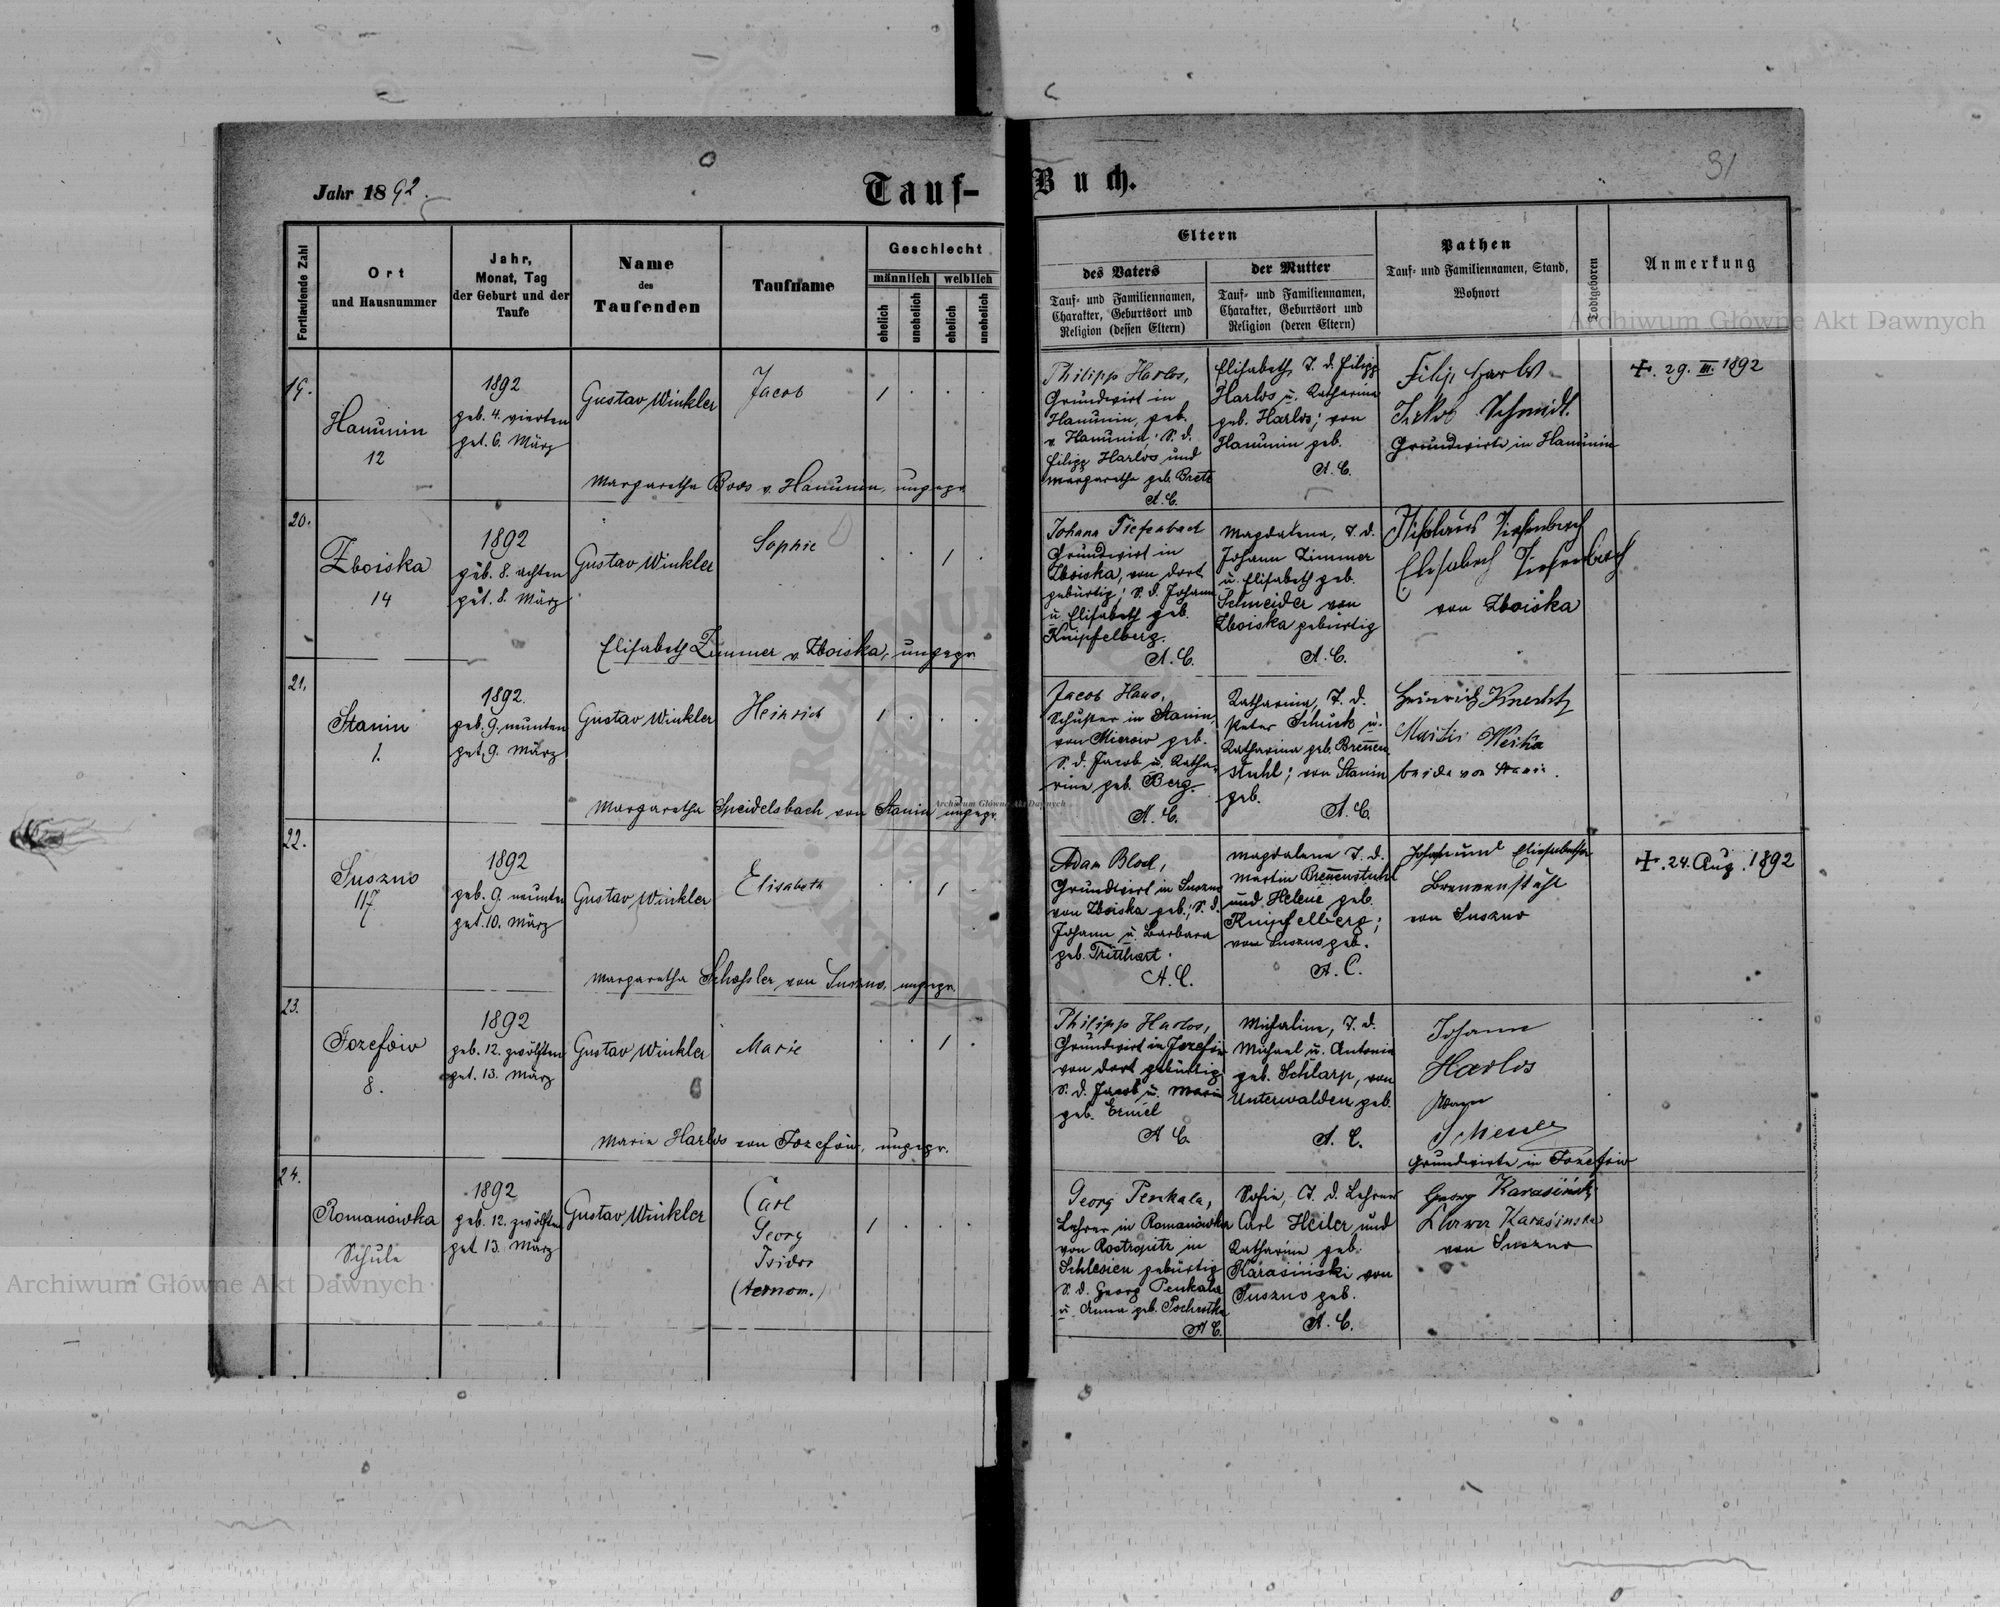 Jahr 1892.
Tauf-
Buch.
31
Fortlaufende Zahl
Ort
und Hausnummer
Jahr,
Monat, Tag
der Geburt und der
Taufe
Name
des
Taufenden
Taufname
Geschlecht
männlich
weiblich
ehelich
unehelich
ehelich
unehelich
Eltern
des Vaters
Tauf- und Familiennamen,
Charakter, Geburtsort und
Religion (dessen Eltern)
der Mutter
Tauf- und Familiennamen,
Charakter, Geburtsort und
Religion (deren Eltern)
Pathen
Tauf- und Familiennamen, Stand,
Wohnort
Todtgeboren
Anmerkung
19.
Hanunin
12
1892
geb. 4. vierten
get. 6. März
Gustav Winkler
Jacob
1
Margaretha Boos v. Hanunin, ungepr.
Philipp Harlos,
Grundwirt in
Hanunin, geb.
v. Hanunin; S. d.
Filipp Harlos und
Margaretha geb. Bretz
A. C.
Elisabeth, T. d. Filipp
Harlos u. Katharina
geb. Harlos; von
Hanunin geb.
A. C.
Filip Harlos
Jakob Schmidt
Grundwirte in Hanunin
+. 29. III. 1892
20.
Zboiska
14
1892
geb. 8. achten
get. 8. März
Gustav Winkler
Sophie
1
Elisabeth Zimmer v. Zboiska, ungepr.
Johann Tiefenbach
Grundwirt in
Zboiska, von dort
gebürtig; S. d. Johann
u. Elisabeth geb.
Knipfelberg.
A. C.
Magdalena, T. d.
Johann Zimmer
u. Elisabeth geb.
Schneider von
Zboiska gebürtig
A. C.
Nikolaus Tiefenbach
Elisabeth Tiefenbach
von Zboiska
21.
Stanin
1.
1892.
geb. 9. neunten
get. 9. März
Gustav Winkler
Heinrich
1
Margaretha Speidelsbach von Stanin ungepr.
Jacob Haus,
Schuster in Stanin,
von Mierow geb.
S. d. Jacob u. Katha-
rina geb. Berg.
A. C.
Katharina, T. d.
Peter Schuck u.
Katharina geb. Brennen
stuhl; von Stanin
geb.
A. C.
Heinrich Knecht
beide von Stanin.
22.
Suszno
117
1892
geb. 9. neunten
get. 10. März
Gustav Winkler
Elisabeth
1
Margaretha Schossler von Suszno, ungepr.
Adam Blod,
Grundwirt in Suszno
von Zboiska geb.; S. d.
Johann u. Barbara
geb. Tritthart.
A. C.
Magdalena T. d.
Martin Brennenstuhl
und Helene geb.
Knipfelberg;
von Suszno geb.
A. C.
Johann und Elisabetha
Brennenstuhl
von Suszno
+. 24. Aug. 1892
23.
Jozefow
8.
1892
geb. 12. zwölften
get. 13. März
Gustav Winkler
Marie
1
Maria Harlos von Jozefow, ungepr.
Philipp Harlos,
Grundwirt in Jozefow
von dort gebürtig
S. d. Jacob u. Maria
geb. Ermel
A C.
Michaline, T. d.
Michael u. Antonia
geb. Schlarp, von
Unterwalden geb.
A. C.
Johann
Harlos
Grundwirte in Jozefow
24.
Romanówka
Schule
1892
geb. 12. zwölften
get. 13. März
Gustav Winkler
Carl
Georg
Isidor
1
Georg Penkala,
Lehrer in Romanówka
von Rostropitz in
Schlesien gebürtig
S. d. Georg Penkala
u. Anna geb.
A C.
Sofie, T. d. Lehrer
Carl Heiler und
Katharina geb.
Karasiński von
Suszno geb.
A. C.
Georg Karasiński
Karasinska
von Suszno
Archiwum Główne Akt Dawnych
Archiwum Główne Akt Dawnych
Archiwum Główne Akt Dawnych